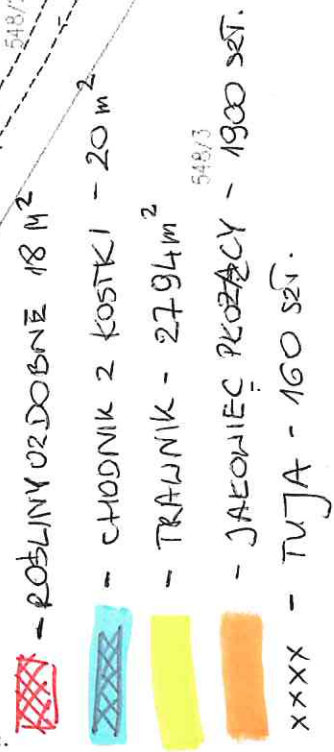 548/
- ROŚLINY OZDOBNE 18 M²
- CHODNIK Z KOSTKI - 20 m²
- TRAWNIK - 2794m²
548/3
- JAŁOWIEC PŁOŻĄCY - 1900 szt.
xxxx - TUJA - 160 szt.